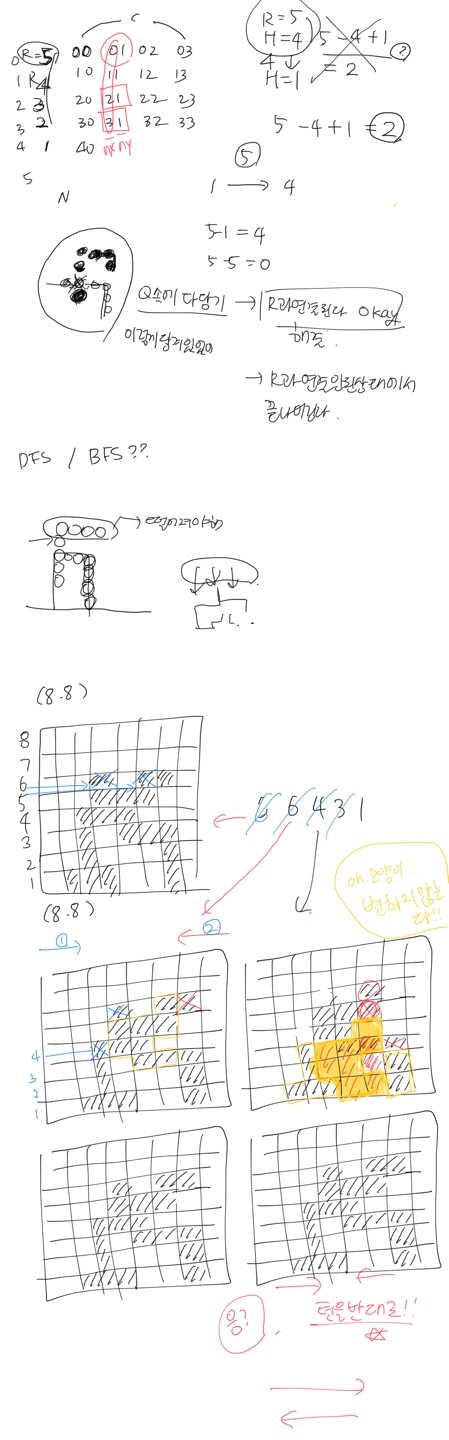 C
0 R=5 00 01 02 03
1 R 4 10 11 12 13
2 3 20 21 22 23
3 2 30 31 32 33
4 1 40 nx ny
5
N
R=5
H=4
4 ↓
H=1
5-4+1
= 2
?
5 - 4 + 1 = 2
5
1 → 4
5-1 = 4
5-5 = 0
Q속에 다담기 → R과연결된다 okay
해줌.
이렇게담겨있었어
→ R과연결안된상태에서
끝나버린다.
DFS / BFS ??
→ 떨어져야해
(8.8)
8
7
6
5
4
3
2
1
6 4 3 1
(8.8)
① → ← ②
ah.. 모양이..
변하지않는
다!!
4
3
2
1
응?
턴을반대로!!